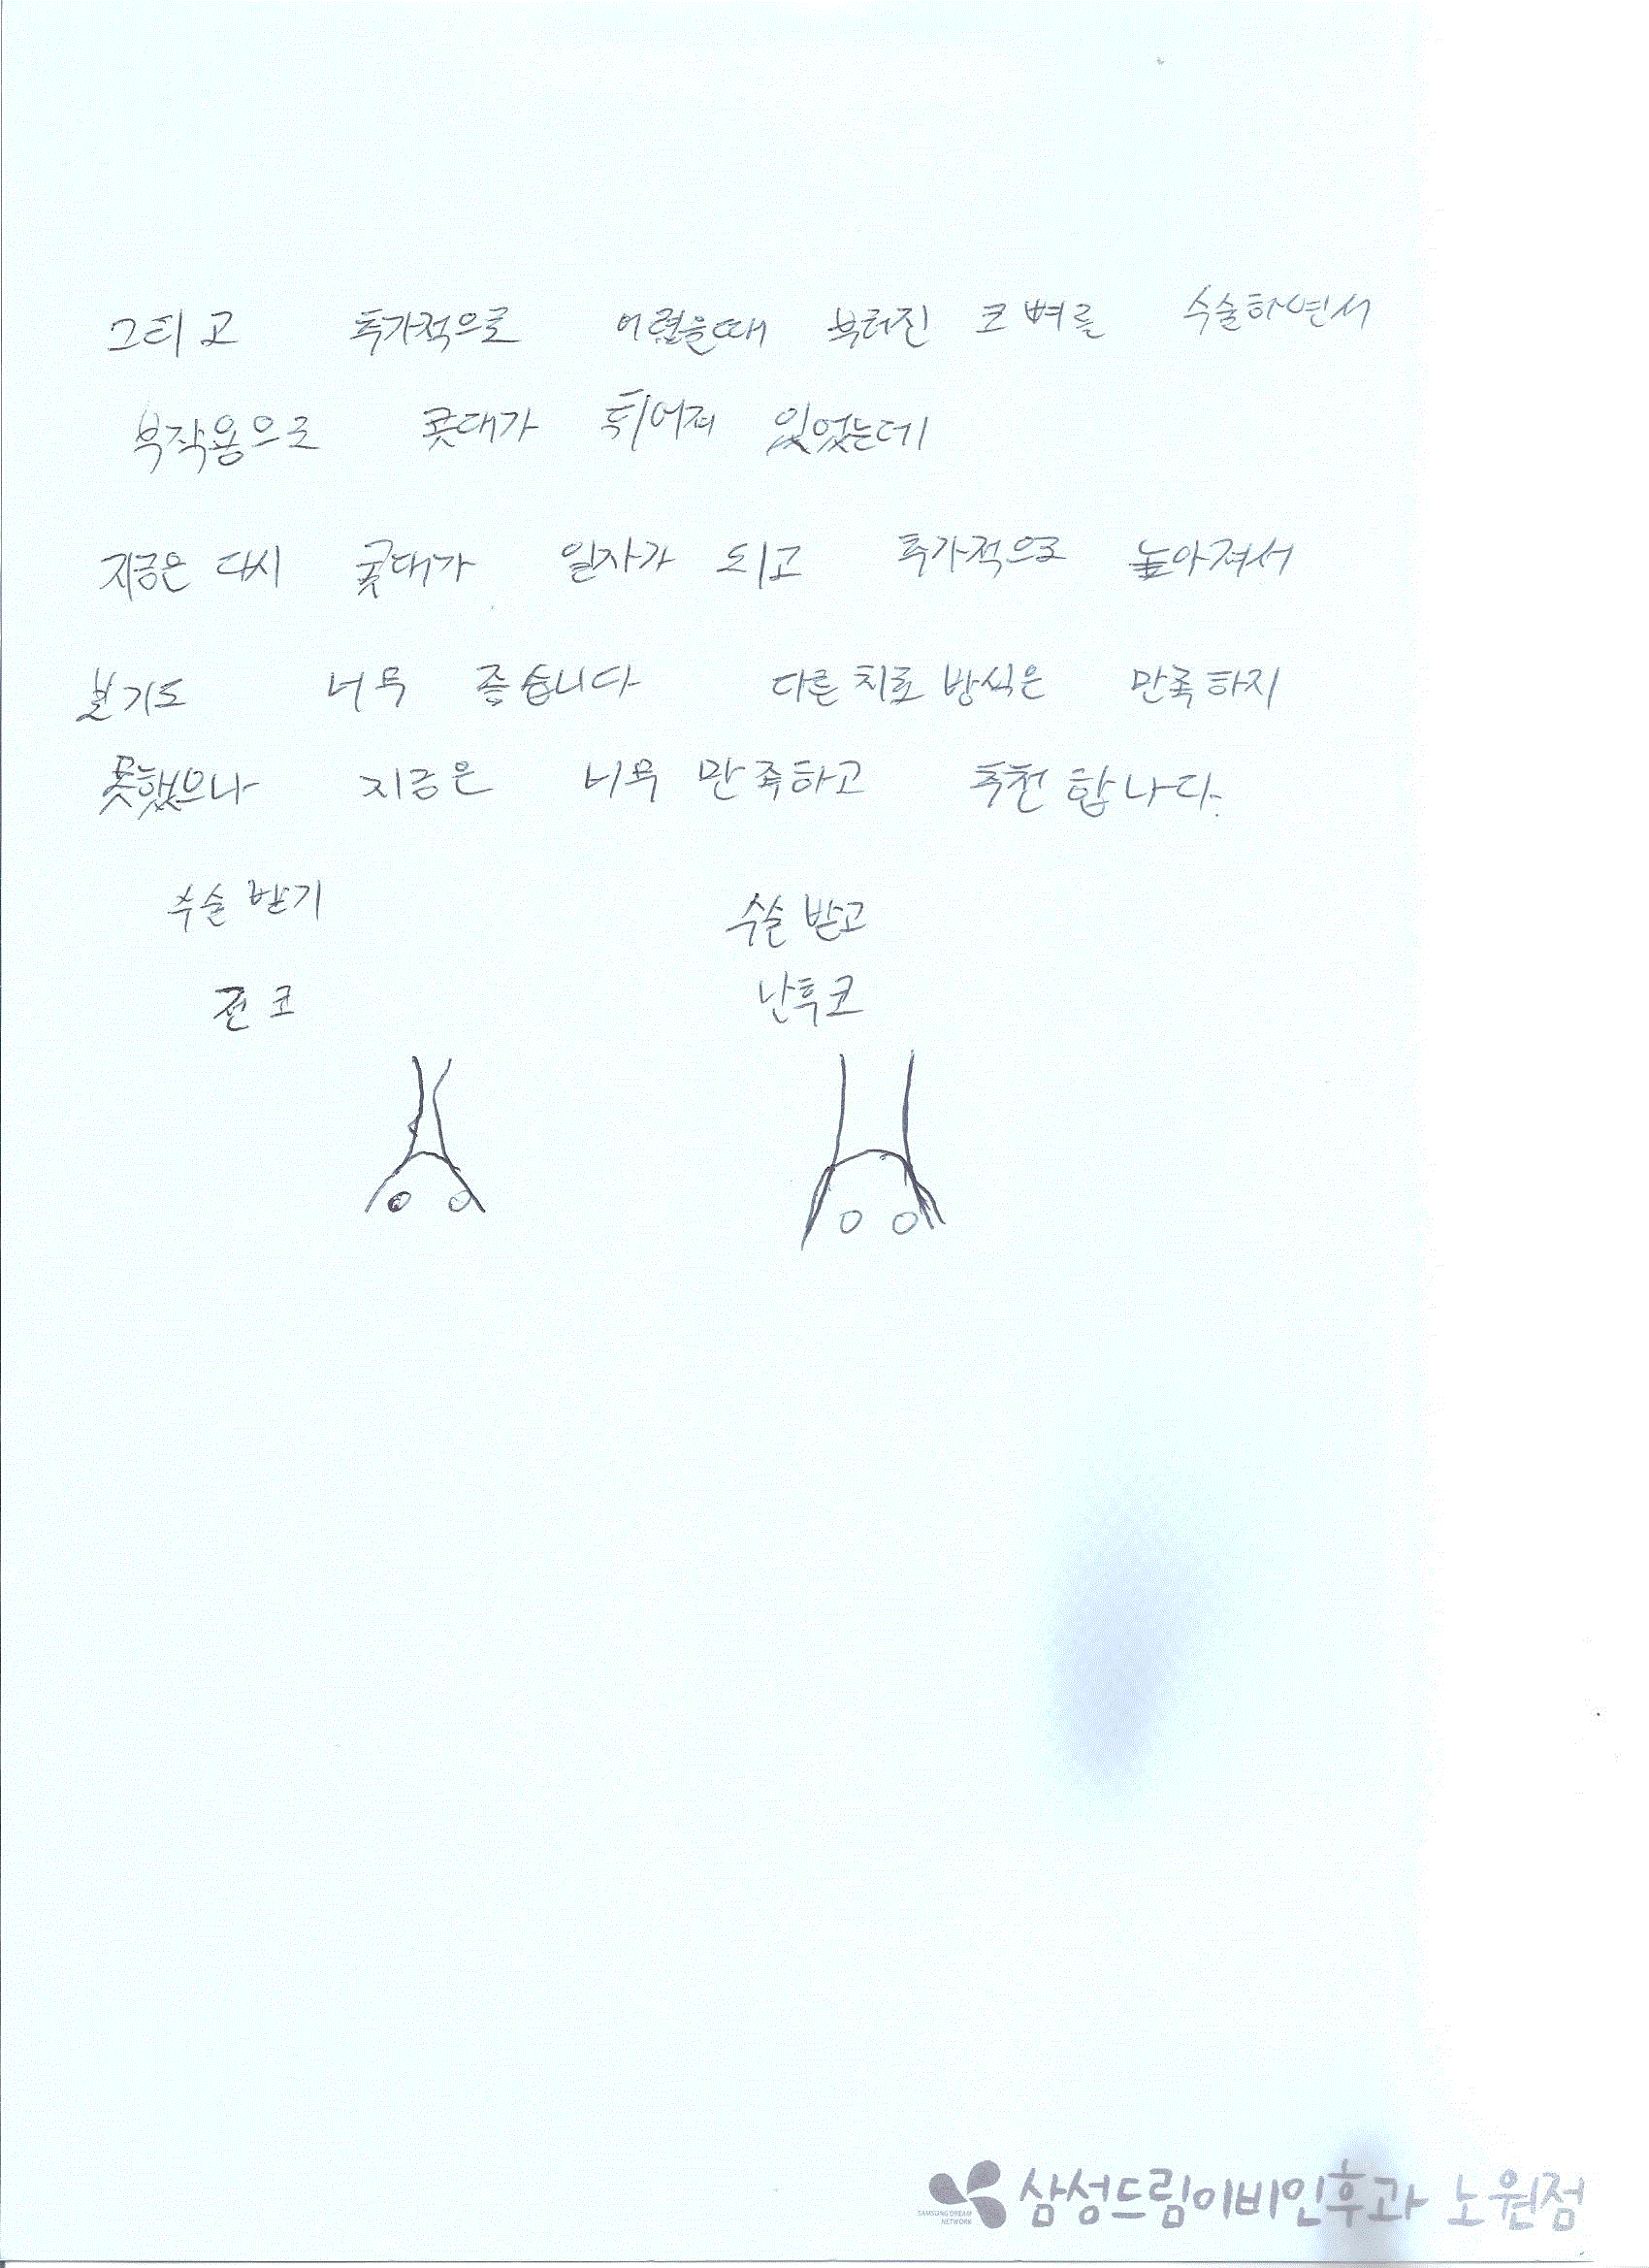 그리고 추가적으로 어렸을때 부러진 코뼈를 수술하면서
부작용으로 콧대가 튀어져 있었는데
지금은 다시 콧대가 일자가 되고 추가적으로 높아져서
보기도 너무 좋습니다 다른 치료 방식은 만족하지
못했으나 지금은 너무 만족하고 추천합니다.
수술 받기
전 코
수술 받고
난후 코
SAMSUNG DREAM
NETWORK
삼성드림이비인후과 노원점